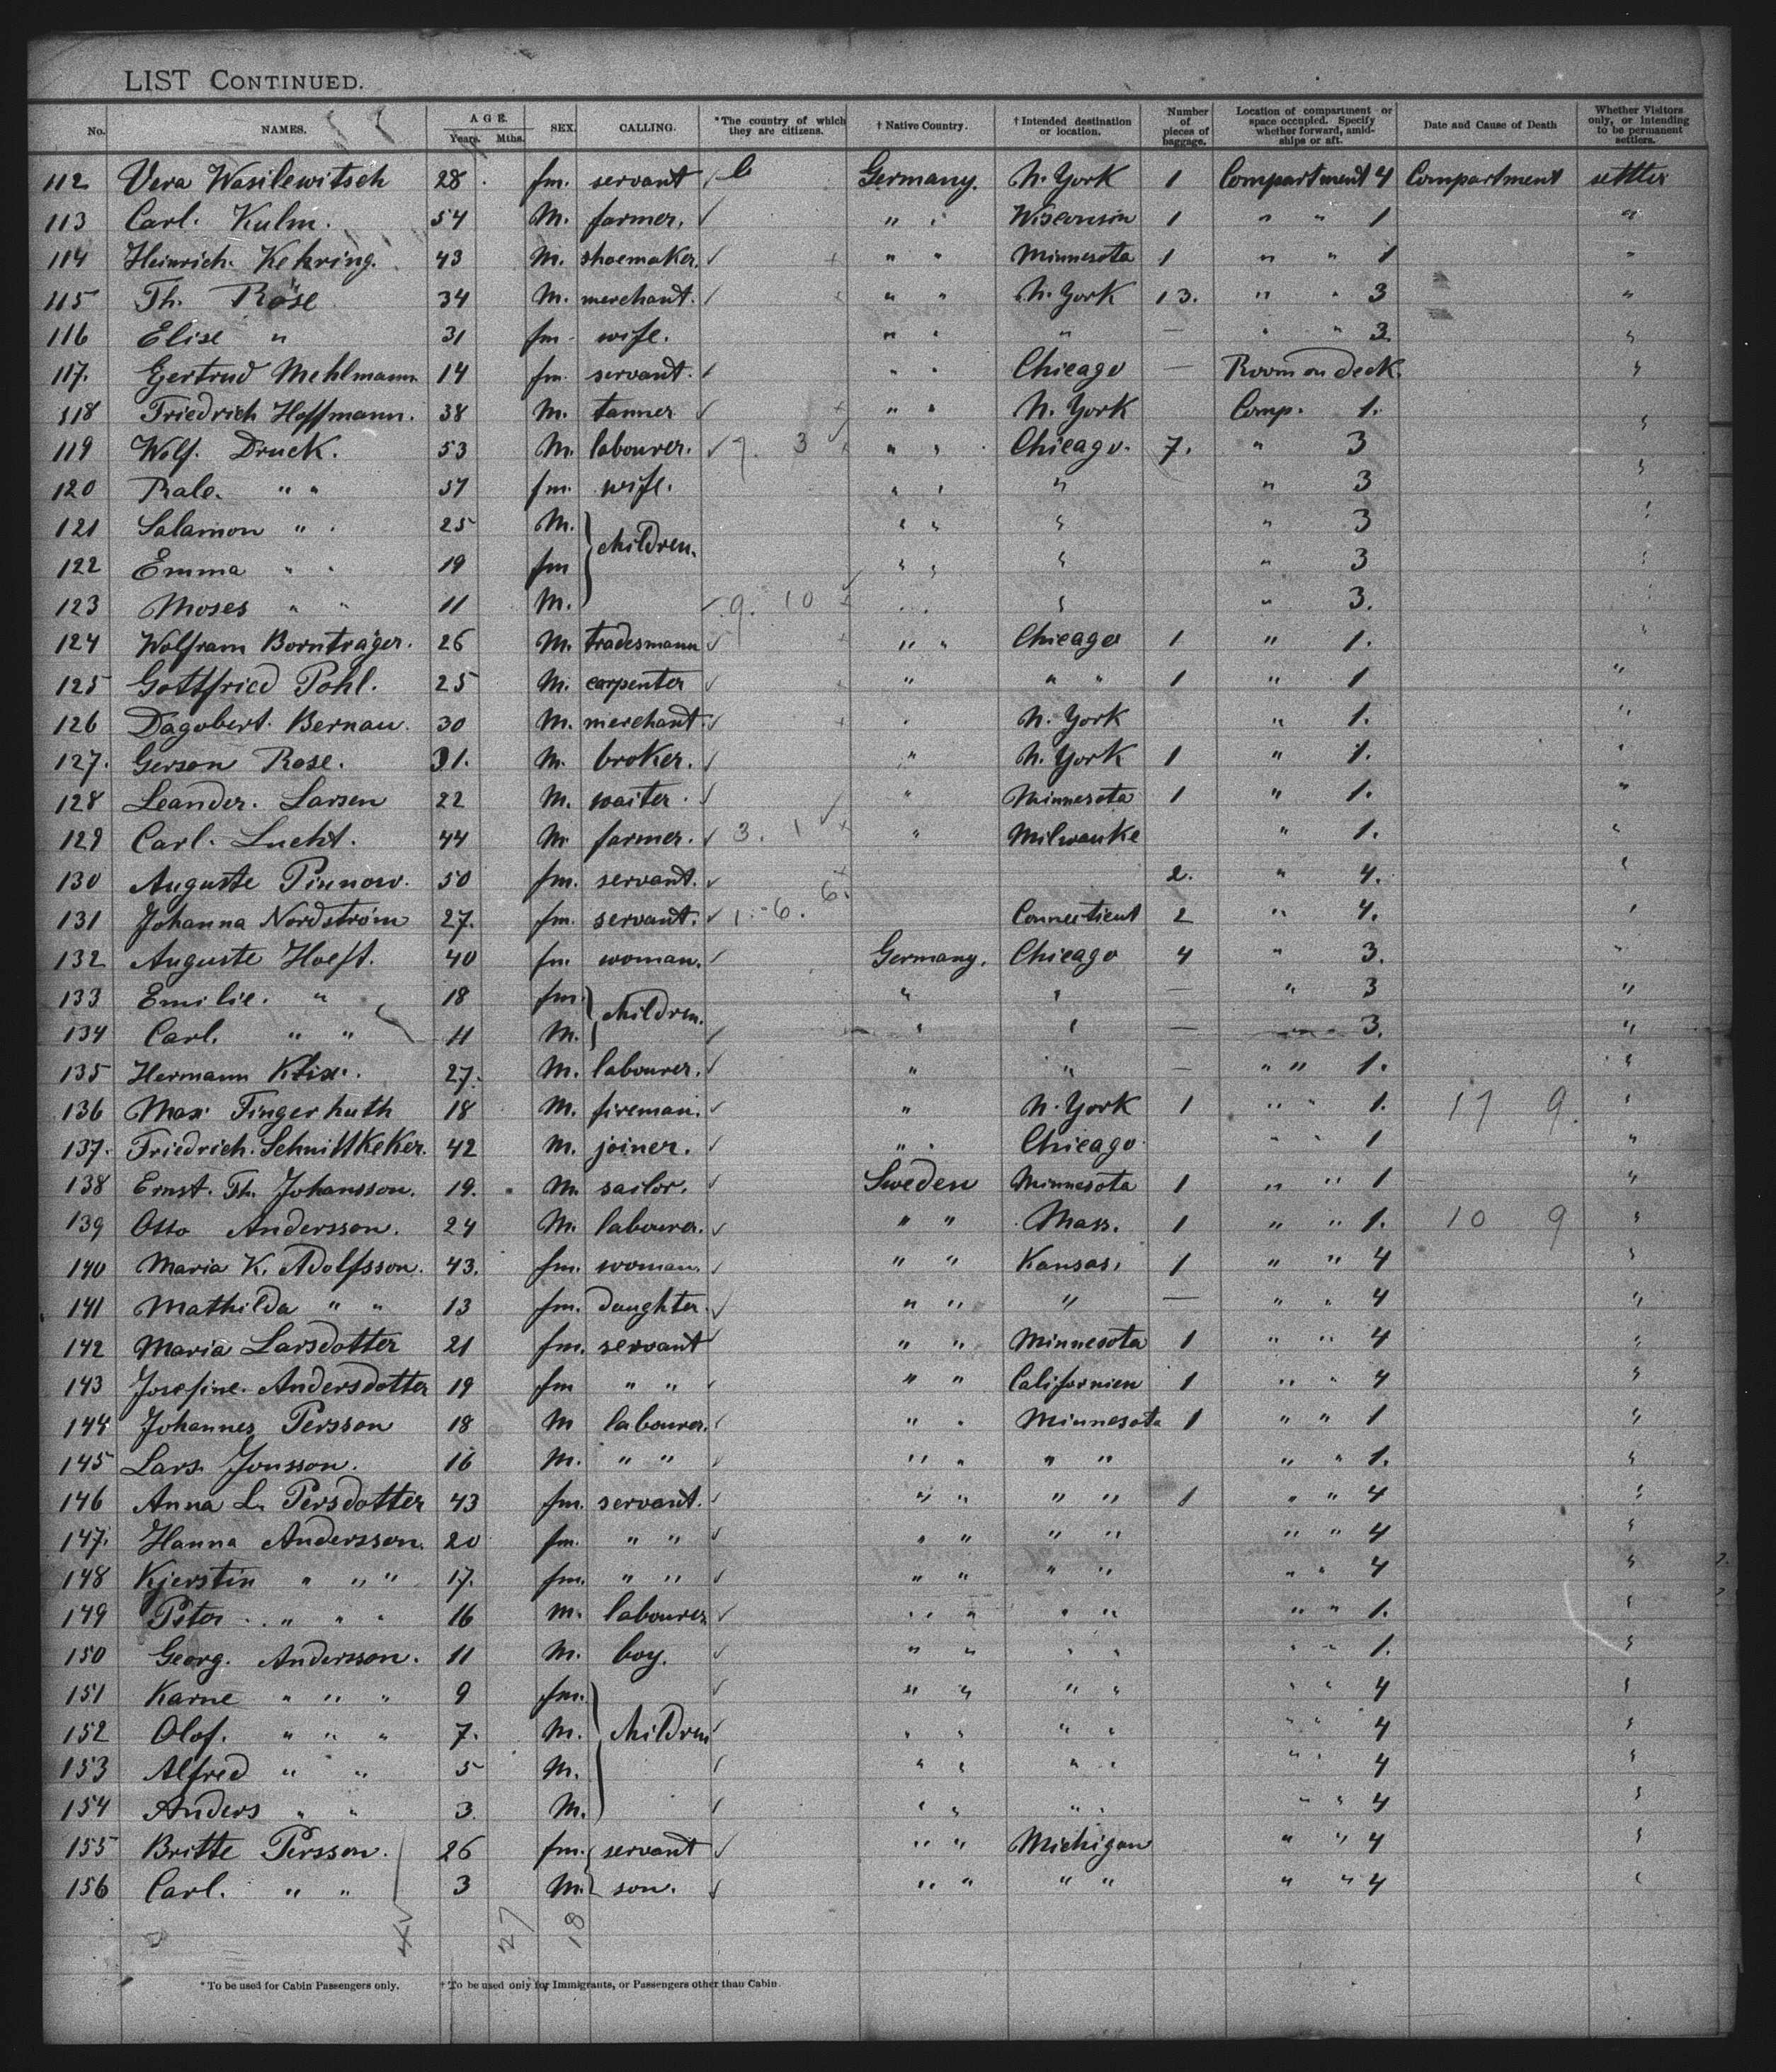 LIST CONTINUED.
No. NAMES. AGE. Years. Mths. SEX. CALLING. *The country of which they are citizens. † Native Country. † Intended destination or location. Number of pieces of baggage. Location of compartment or space occupied. Specify whether forward, amidships or aft. Date and Cause of Death Whether Visitors only, or intending to be permanent settlers.
112 Vera Wasilewitsch 28 fm. servant Germany. N. York 1 Compartment 4 Compartment settler
113 Carl. Kulm. 54 M. farmer. " " Wisconsin 1 " " 1 "
114 Heinrich. Kehring. 43 M. shoemaker. " " Minnesota 1 " " 1 "
115 Th. Röse 34 M. merchant. " " N. York 13. " " 3 "
116 Elise " 31 fm. wife. " " " — " " 3. "
117. Gertrud Mehlmann 14 fm. servant. " " Chicago — Room on deck. "
118 Friedrich Hoffmann. 38 M. tanner " " N. York Comp. 1. "
119 Wolf. Druck. 53 M. labourer. 7. 3 " " Chicago. 7. " 3 "
120 Rale. " " 51 fm. wife. " " " " 3 "
121 Salamon " 25 M. " " " " 3 "
122 Emma " " 19 fm children. " " " " 3 "
123 Moses " " 11 M. 9. 10 " " " " 3. "
124 Wolfram Bornträger. 26 M. tradesmann " " Chicago 1 " 1. "
125 Gottfried Pohl. 25 M. carpenter " " " 1 " 1 "
126 Dagobert. Bernau. 30 M. merchant. " N. York " 1. "
127. Gerson Rose. 31. M. broker. " N. York 1 " 1. "
128 Leander. Larsen 22 M. waiter. " Minnesota 1 " 1. "
129 Carl. Lucht. 44 M. farmer. 3. 1 " Milwauke " 1. "
130 Auguste Pinnow. 50 fm. servant. 2. " 4. "
131 Johanna Nordström 27. fm. servant. 1.-6. 6. Connecticut 2 " 4. "
132 Auguste Hoeft. 40 fm. woman. Germany. Chicago 4 " 3. "
133 Emilie. " 18 fm. children. " " — " 3 "
134 Carl. " " 11 M. " " — " 3. "
135 Hermann Klix. 27. M. labourer. " " — " " 1. "
136 Max Fingerhuth 18 M. fireman. " N. York 1 " " 1. 17 9. "
137. Friedrich. Schnittkeker. 42 M. joiner. " " Chicago " " 1 "
138 Ernst. Th. Johansson. 19. M. sailor. Sweden Minnesota 1 " " 1 "
139 Otto Andersson. 24 M. labourer. " " Mass. 1 " " 1. 10 9 "
140 Maria K. Adolfsson. 43. fm. woman. " " Kansas. 1 " " 4 "
141 Mathilda " " 13 fm. daughter. " " " — " " 4 "
142 Maria Larsdotter 21 fm. servant " " Minnesota 1 " " 4 "
143 Josefine. Andersdotter 19 fm " " " " Californien 1 " " 4 "
144 Johannes Persson 18 M labourer. " " Minnesota 1 " " 1 "
145 Lars. Jonsson. 16 M. " " " " " " " " 1. "
146 Anna L. Persdotter 43 fm. servant. " " " " 1 " " 4 "
147. Hanna Andersson. 20 fm. " " " " " " " " 4 "
148 Kjerstin " " " 17. fm. " " " " " " " " 4 "
149 Peter " " " 16 M. labourer " " " " " " 1. "
150 Georg. Andersson. 11 M. boy. " " " " " " 1. "
151 Karne " " " 9 fm. " " " " " " 4 "
152 Olof. " " " 7. M. children " " " " " " 4 "
153 Alfred " " 5 M. " " " " " " 4 "
154 Anders " " 3. M. " " " " " " 4 "
155 Britte Persson. 26 fm. servant " " Michigan " " 4 "
156 Carl. " " 3 M. son. " " " " " " 4 "
27 18
*To be used for Cabin Passengers only. † To be used only for Immigrants, or Passengers other than Cabin.